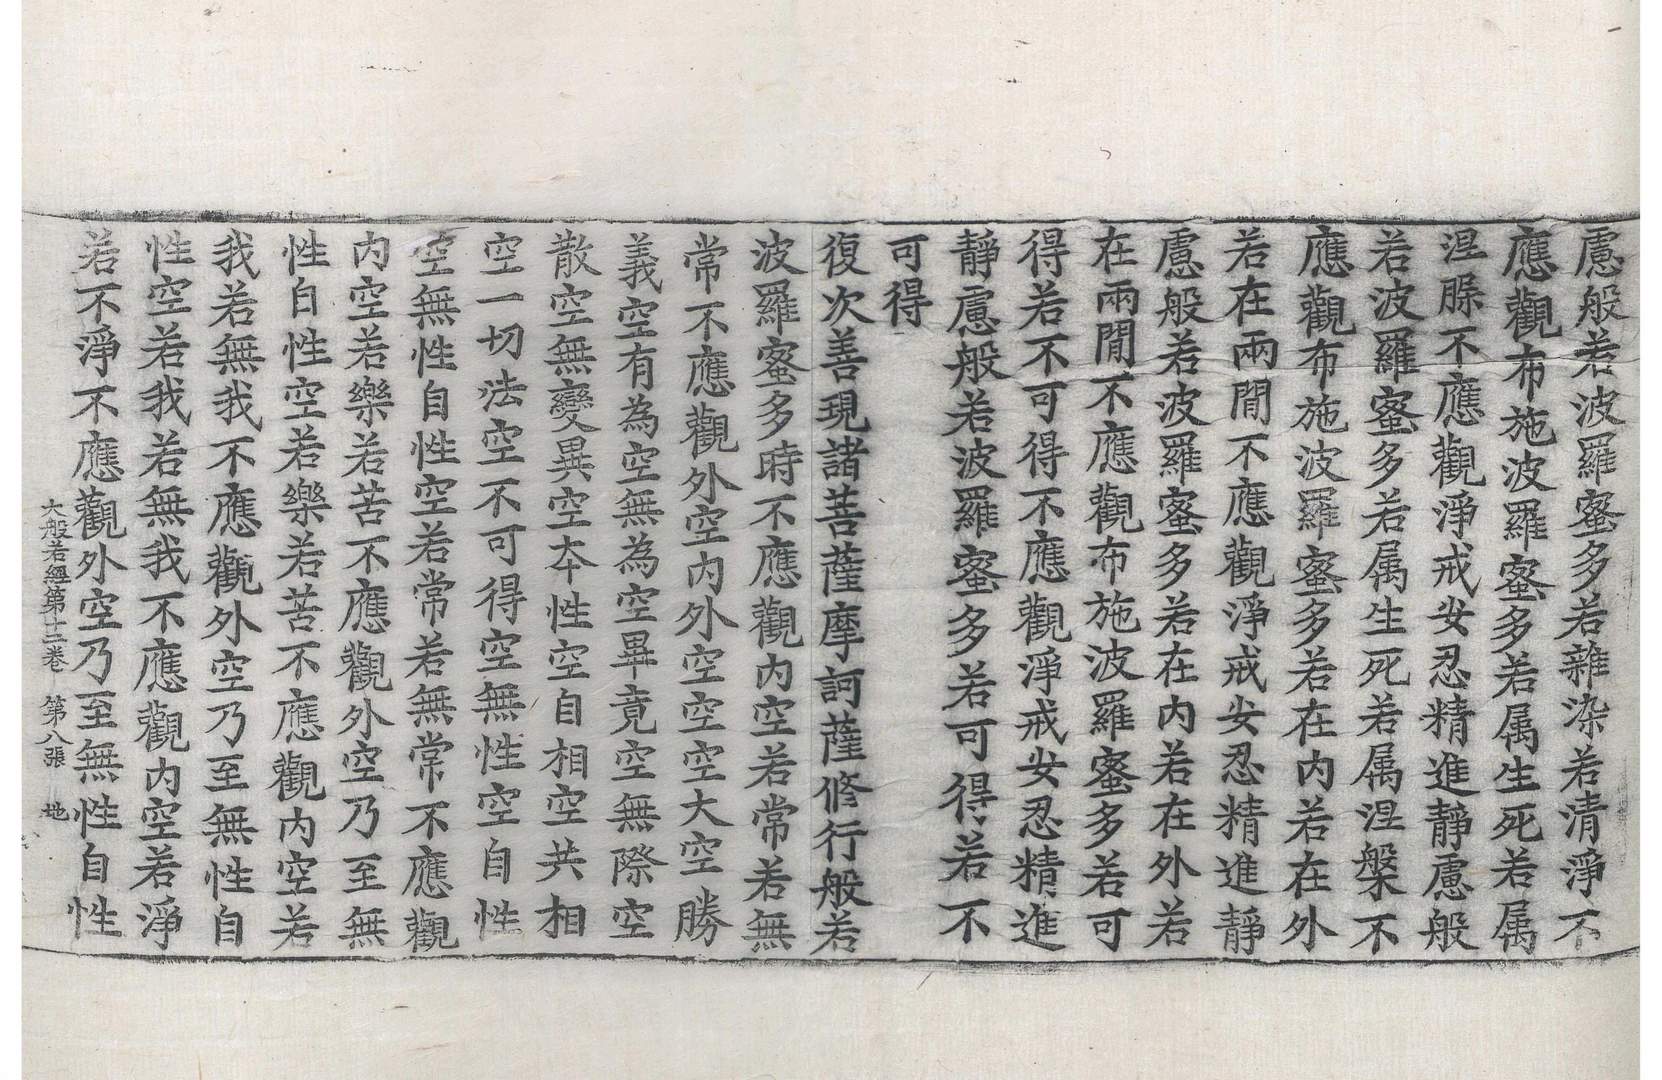 慮般若波羅蜜多若雜染若清淨不
應觀布施波羅蜜多若属生死若属
涅槃不應觀淨戒安忍精進靜慮般
若波羅蜜多若属生死若属涅槃不
應觀布施波羅蜜多若在內若在外
若在兩閒不應觀淨戒安忍精進靜
慮般若波羅蜜多若在內若在外若
在兩閒不應觀布施波羅蜜多若可
得若不可得不應觀淨戒安忍精進
靜慮般若波羅蜜多若可得若不
可得
復次善現諸菩薩摩訶薩修行般若
波羅蜜多時不應觀內空若常若無
常不應觀外空內外空空空大空勝
義空有為空無為空畢竟空無際空
散空無變異空本性空自相空共相
空一切法空不可得空無性空自性
空無性自性空若常若無常不應觀
內空若樂若苦不應觀外空乃至無
性自性空若樂若苦不應觀內空若
我若無我不應觀外空乃至無性自
性空若我若無我不應觀內空若淨
若不淨不應觀外空乃至無性自性
大般若經第十二卷 第八張 地